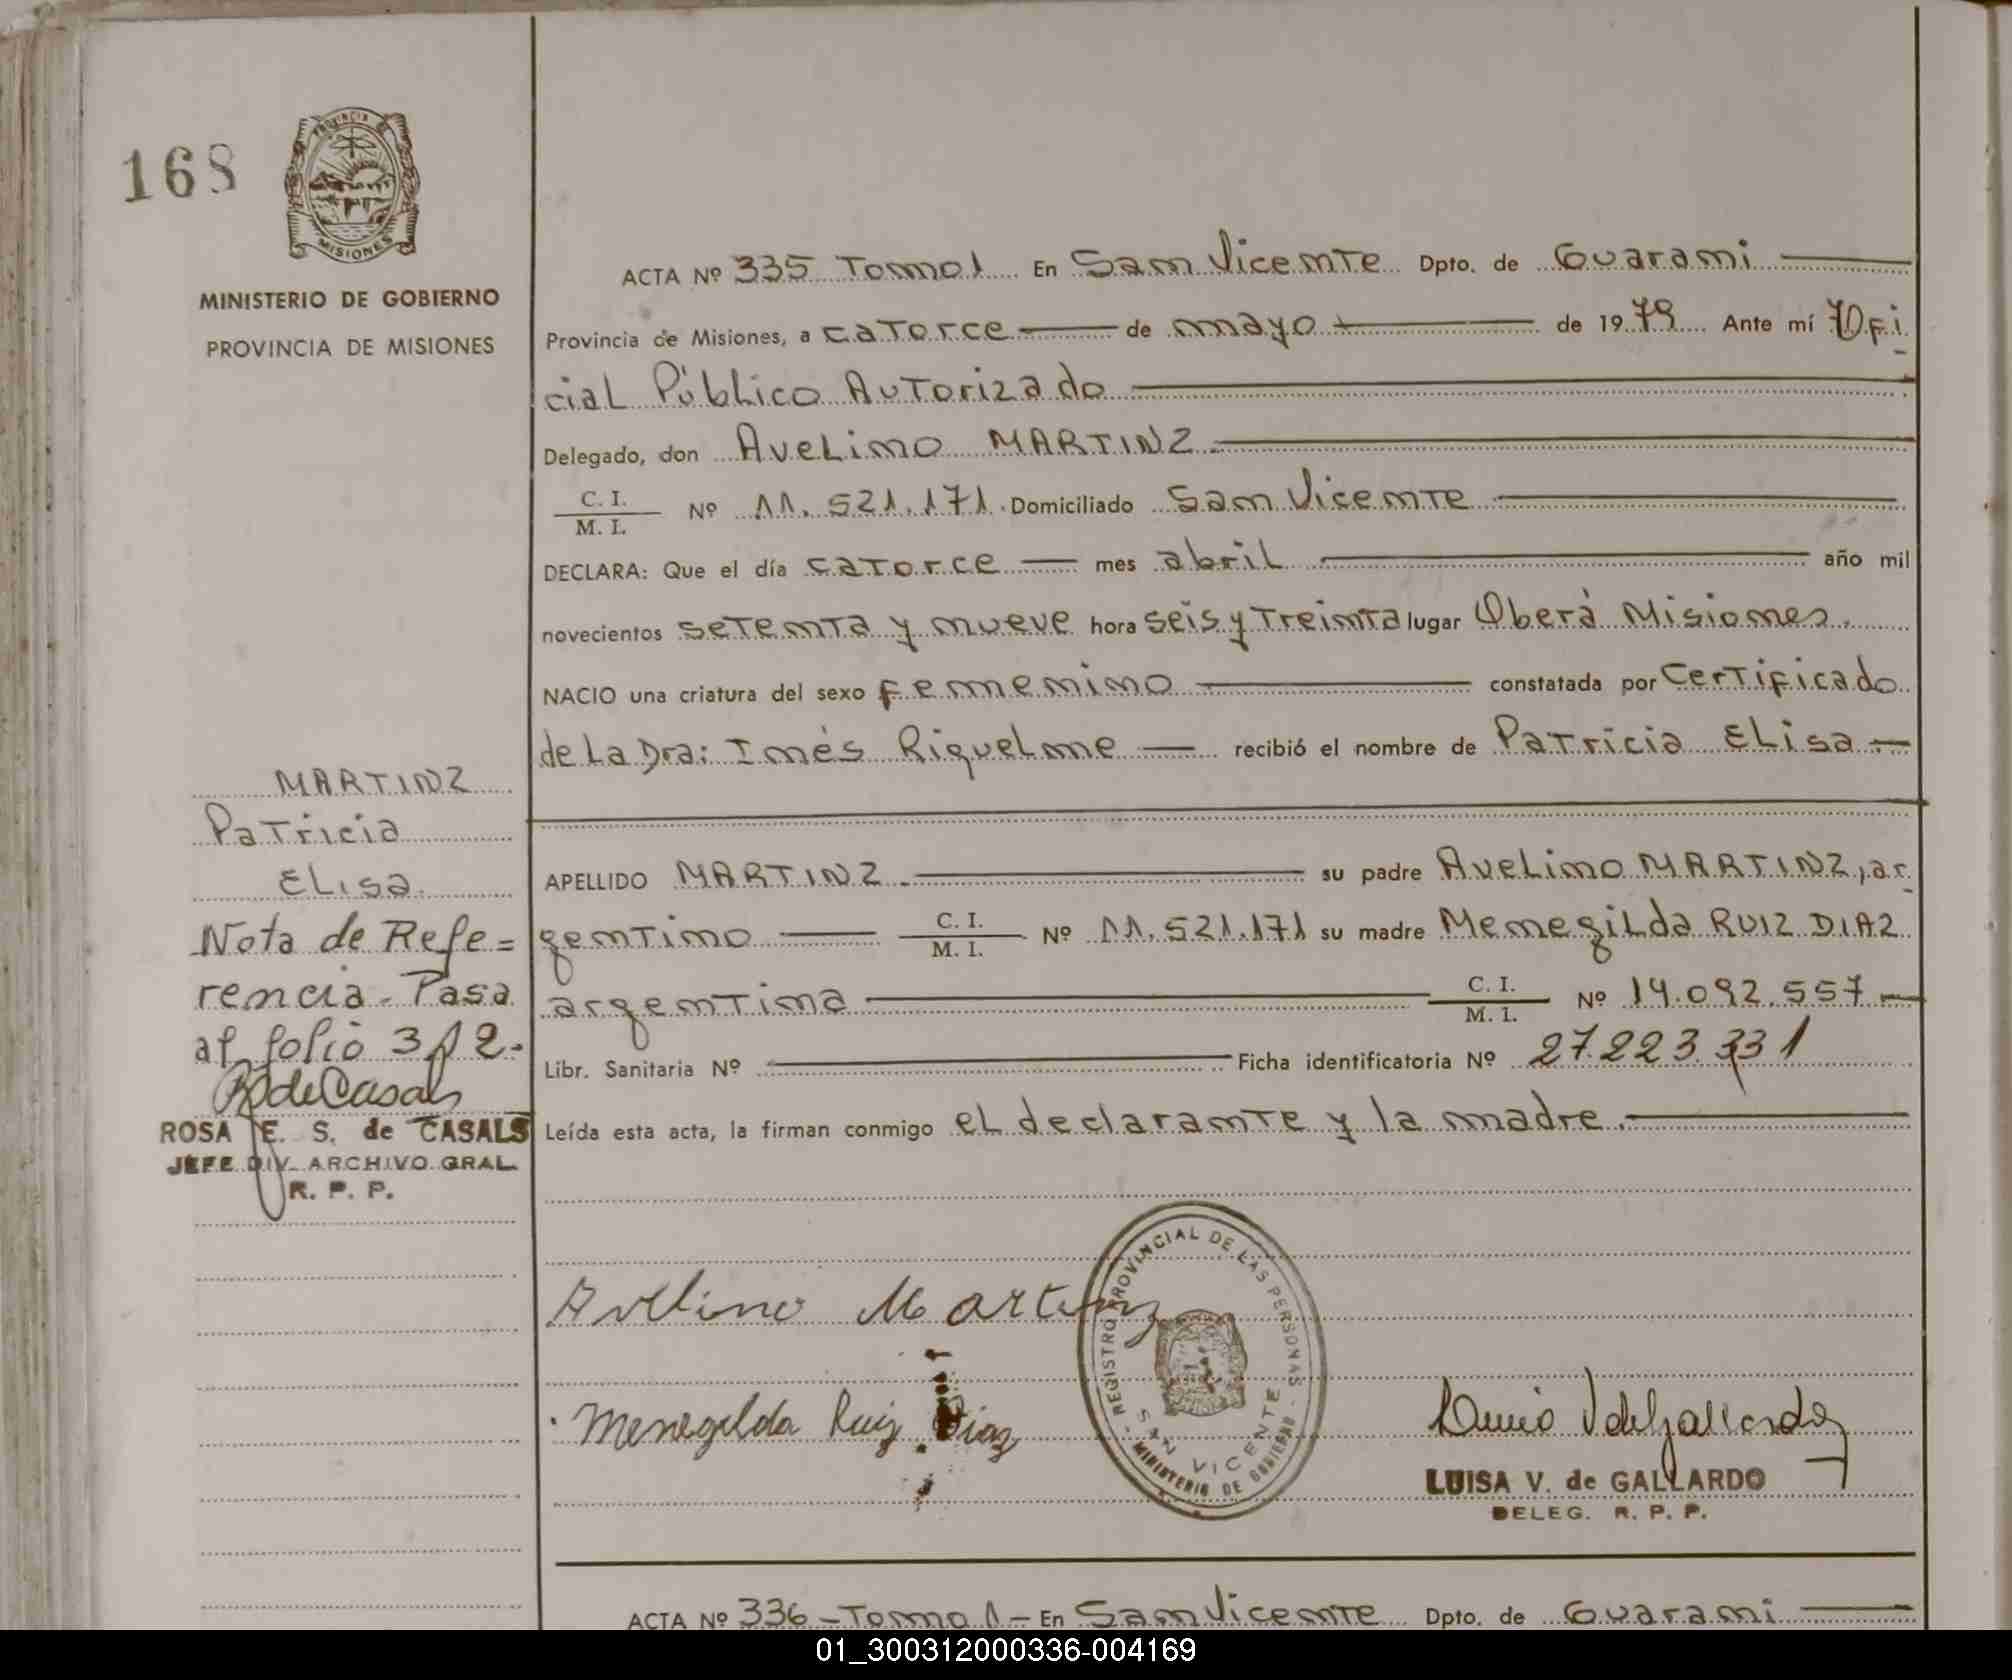 168
PROVINCIA DE
MISIONES
MINISTERIO DE GOBIERNO
PROVINCIA DE MISIONES
ACTA Nº 335 Tomo 1 En San Vicente Dpto. de Guarani
Provincia de Misiones, a catorce de mayo de 1979 Ante mí Ofi
cial Público Autorizado
Delegado, don Avelino MARTINZ
C. I.
M. I.
Nº 11.521.171. Domiciliado San Vicente
DECLARA: Que el día catorce mes abril año mil
novecientos setenta y nueve hora seis y treinta lugar Oberá Misiones.
NACIO una criatura del sexo femenino constatada por Certificado
de la Dra: Inés Riquelme recibió el nombre de Patricia Elisa
MARTINZ
Patricia
Elisa
Nota de Refe=
rencia - Pasa
al folio 312.
ROSA E. S. de CASALS
JEFE DIV. ARCHIVO GRAL.
R. P. P.
APELLIDO MARTINZ su padre Avelino MARTINZ, ar
gentino C. I. M. I. Nº 11.521.171 su madre Menegilda RUIZ DIAZ
argentina C. I. M. I. Nº 14.092.557
Libr. Sanitaria Nº Ficha identificatoria Nº 27.223.331
Leída esta acta, la firman conmigo el declarante y la madre.
Avelino Martinz
Menegilda Ruiz Diaz
REGISTRO PROVINCIAL DE LAS PERSONAS
SAN VICENTE
MINISTERIO DE GOBIERNO
LUISA V. de GALLARDO
DELEG. R. P. P.
ACTA Nº 336 - Tomo 1 - En San Vicente Dpto. de Guarani
01_300312000336-004169